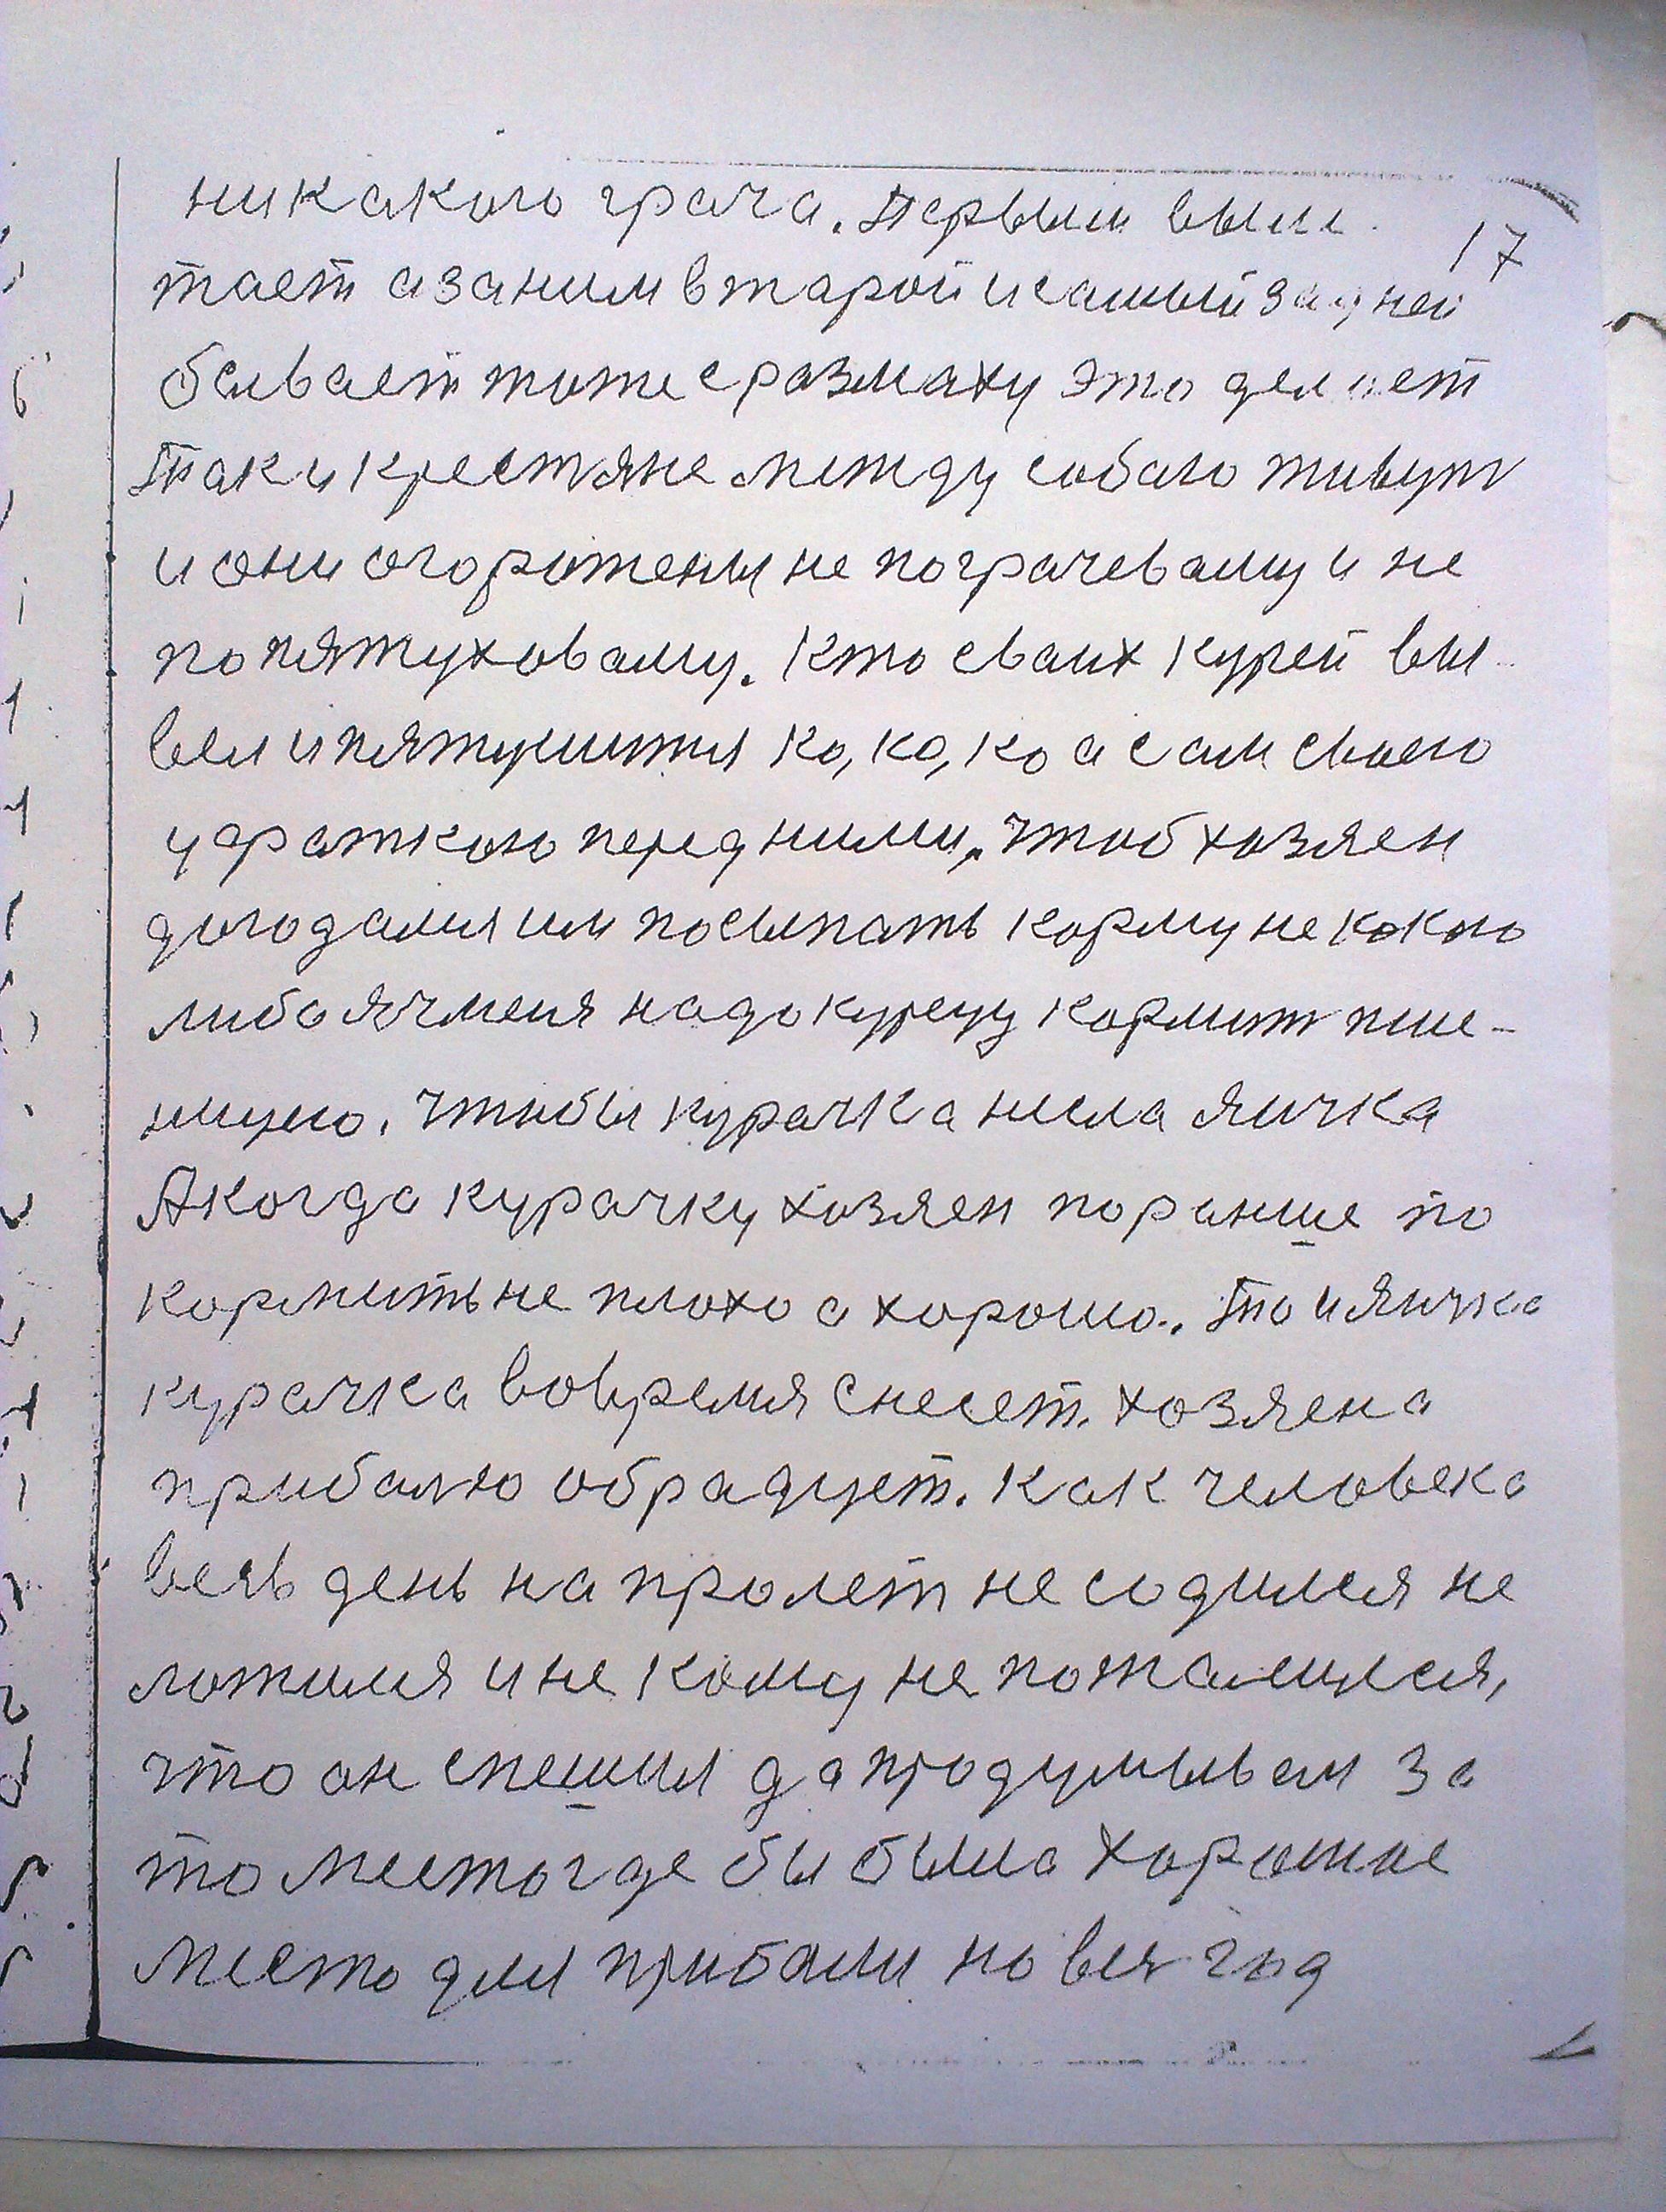 никакого грача. Первым выле
17
тает а за ним втарой и самый задней
бывает тоже с размаху это делает
Так и крестяне между собаю живут
и они огорожены не пограчеваму и не
попятуховаму. Кто сваих курей вы-
вел и пятушится ко, ко, ко а сам сваею
ухваткою перед ними, чтоб хозяен
догодался им посыпать корму не какого
либа ячменя надо курецу кормит пше-
ницею. Чтобы курачка несла яичка
А когда курачку хозяен поранше по
кормить не плохо а хорошо. То и яичка
курачка вовремя снесет. хозяена
прибалю обрадует. Как человека
весь день на пролет не содился не
ложился и не кому не пожалился,
что он спешил да продумывал за
то место где бы была хорошое
место для прибали на вся год